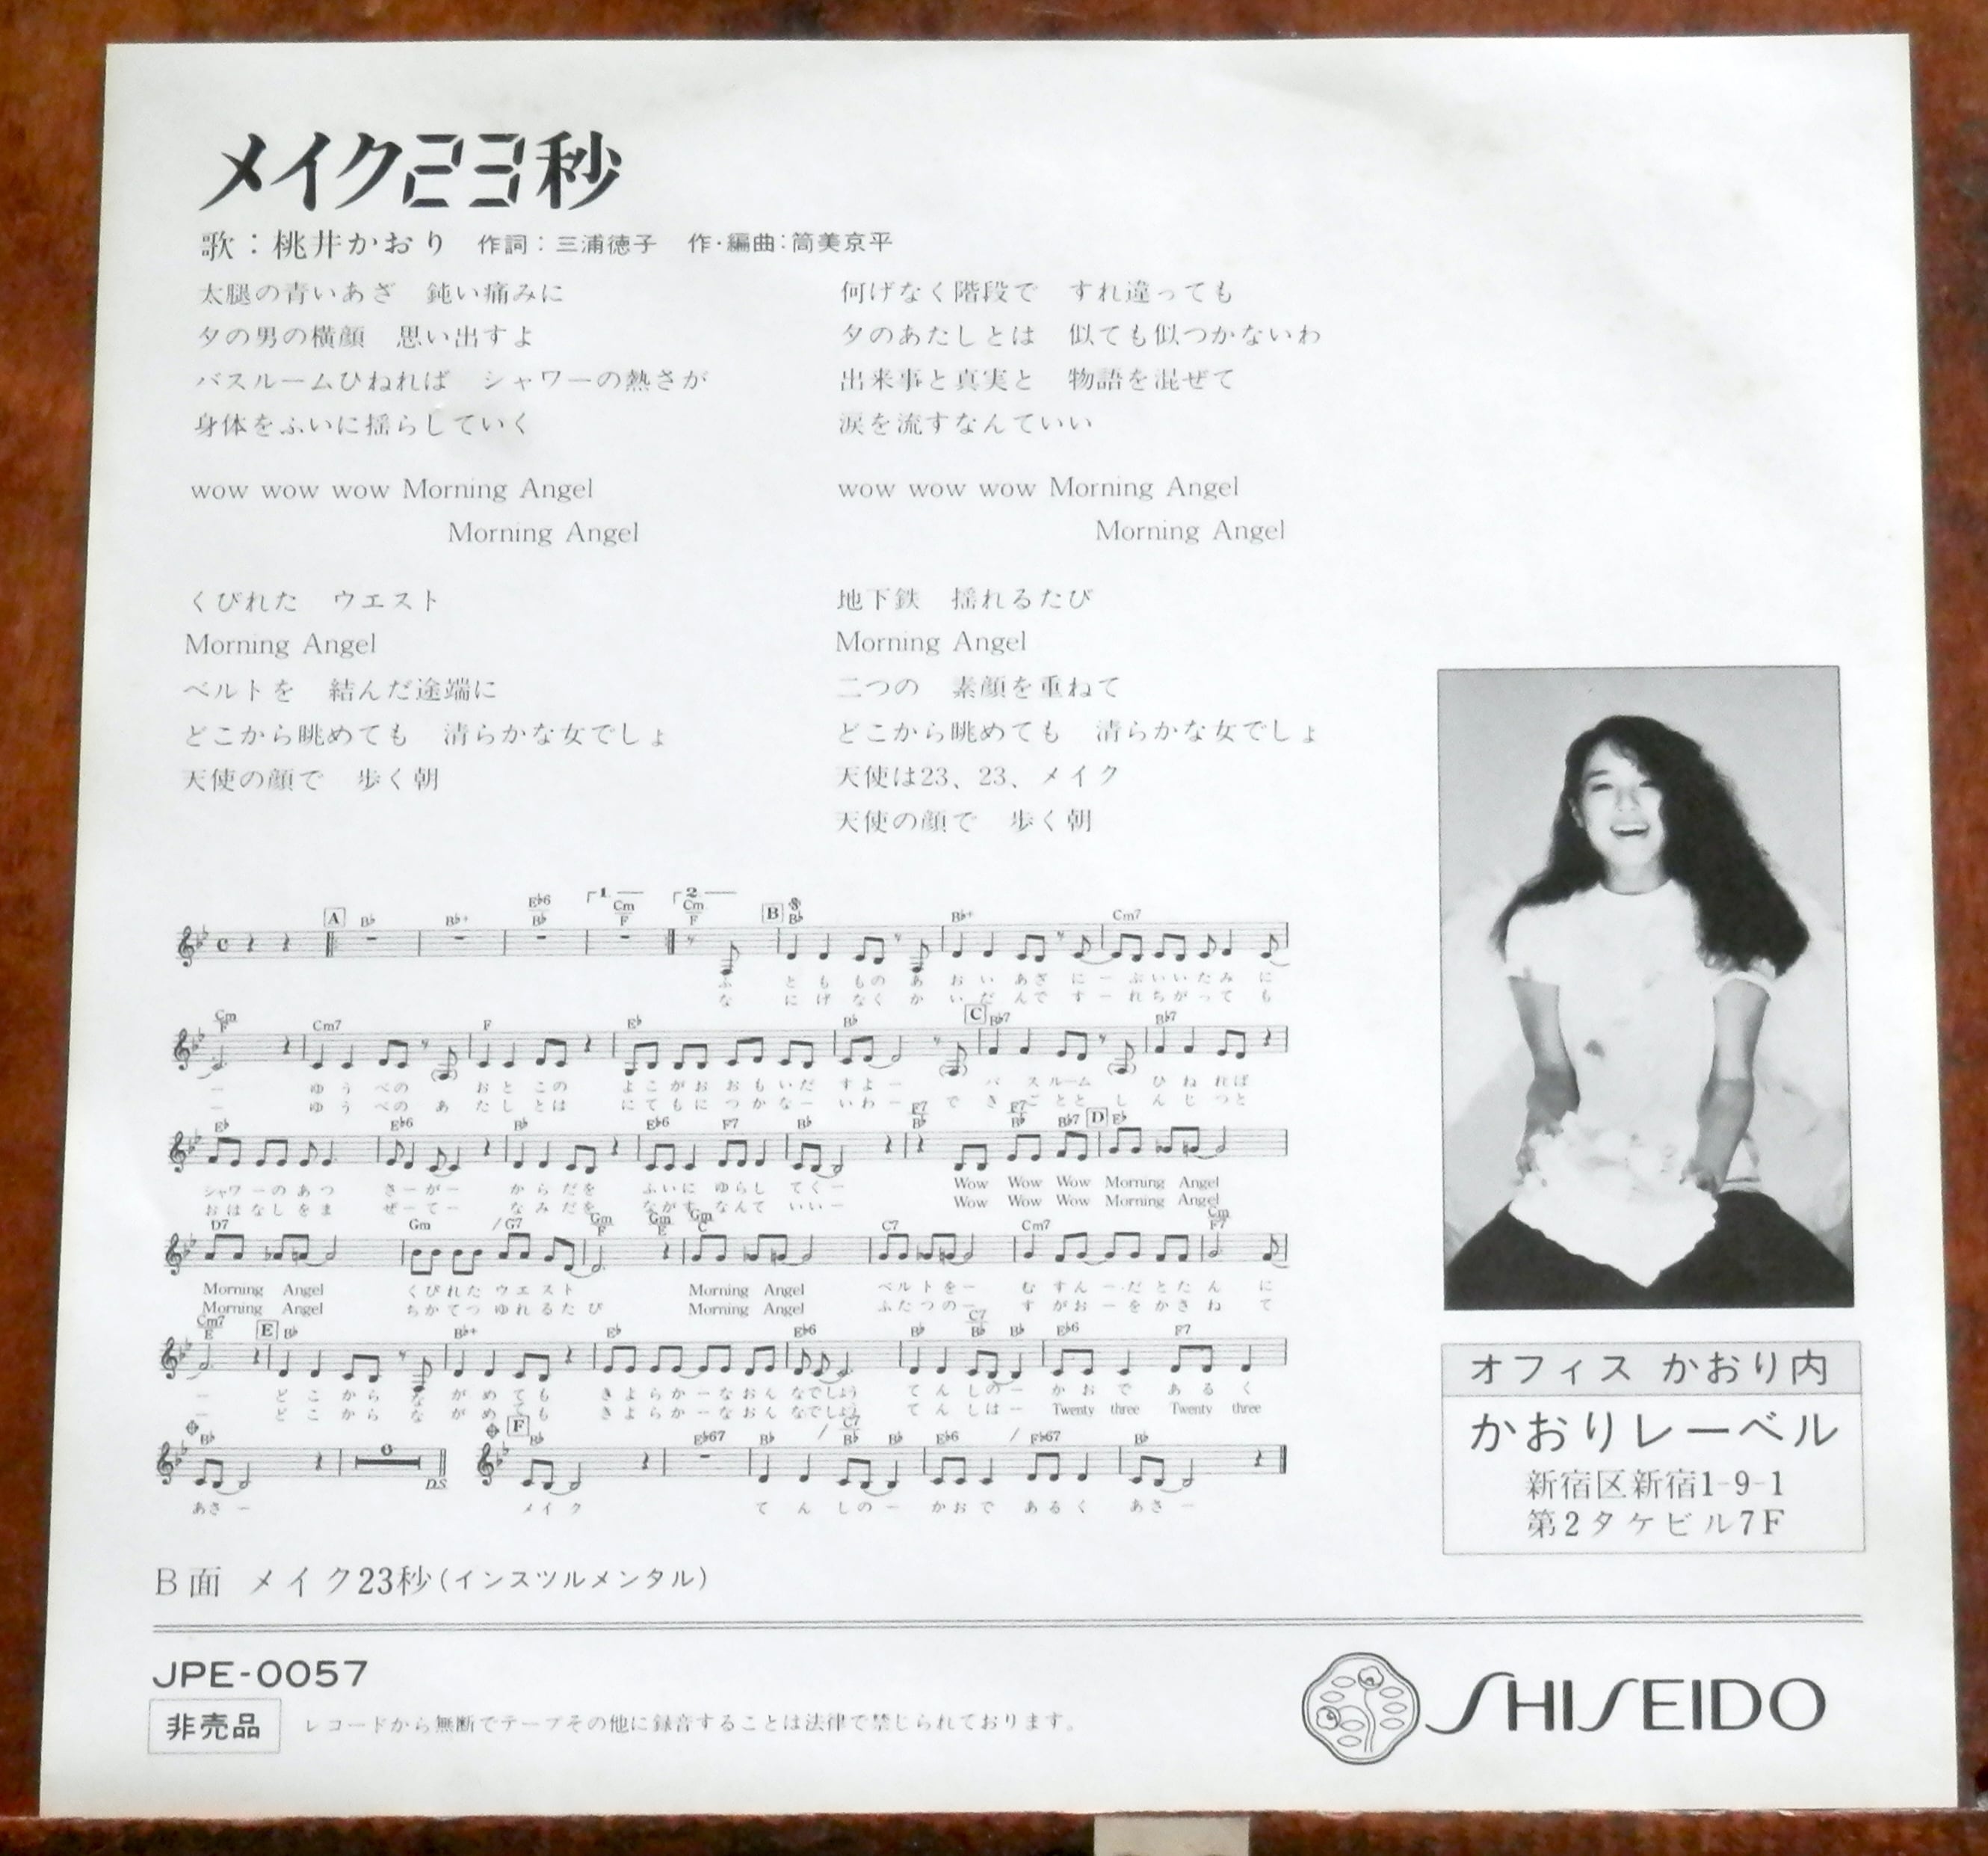 メイク23秒
歌：桃井かおり　作詞：三浦徳子　作・編曲：筒美京平
太腿の青いあざ　鈍い痛みに
夕の男の横顔　思い出すよ
バスルームひねれば　シャワーの熱さが
身体をふいに揺らしていく
wow wow wow Morning Angel
Morning Angel
くびれた　ウエスト
Morning Angel
ベルトを　結んだ途端に
どこから眺めても　清らかな女でしょ
天使の顔で　歩く朝
何げなく階段で　すれ違っても
夕のあたしとは　似ても似つかないわ
出来事と真実と　物語を混ぜて
涙を流すなんていい
wow wow wow Morning Angel
Morning Angel
地下鉄　揺れるたび
Morning Angel
二つの　素顔を重ねて
どこから眺めても　清らかな女でしょ
天使は23、23、メイク
天使の顔で　歩く朝
A B♭ B♭+ E♭6 B♭ 1. Cm F 2. Cm F B B♭ B♭+ Cm7
ふ と も もの あ お い あざ に ー ぶいいたみ に
な に げ なく か い だ んで す ー れちがって も
Cm F Cm7 F E♭ B♭ C B♭7 B♭7
ー ゆ う べの お と この よこ がお おも いだ すよ ー バ スルーム ひ ね れば
ー ゆ う べの あ た し とは にて もに つか なー いわ ー で き ごとと し ん じ つと
E♭ E♭6 B♭ E♭6 F7 B♭ F7 B♭ F7 B♭ B♭7 D E♭
シャワーの あつ さーがー か ら だを ふいに ゆらし てくー Wow Wow Wow Morning Angel
おはなし をま ぜーてー な み だを ながす なんて いいー Wow Wow Wow Morning Angel
D7 Gm /G7 Gm F Gm E Gm C C7 Cm7 Cm F7
Morning Angel くびれた ウエスト Morning Angel ベルトをー む すん ー だ とた ん に
Morning Angel ちかてつ ゆれるたび Morning Angel ふたつのー す がお ー を かさ ね て
Cm7 E E B♭ B♭+ E♭ E♭6 B♭ C7 B♭ B♭ E♭6 F7
ー ど こ から な が め ても きよ らか ーな おん なでしょう て ん しのー か お で ある く
ー ど こ から な が め ても きよ らか ーな おん なでしょう て ん しはー Twenty three Twenty three
B♭ 6 D.S. F B♭ E♭67 B♭ / C7 B♭ B♭ E♭6 / E♭67 B♭
あさ ー メイ ク て ん しの ー かおで あるく あさ ー
B面　メイク23秒（インスツルメンタル）
オフィス かおり内
かおりレーベル
新宿区新宿1-9-1
第2タケビル7F
JPE-0057
非売品　レコードから無断でテープその他に録音することは法律で禁じられております。
SHISEIDO